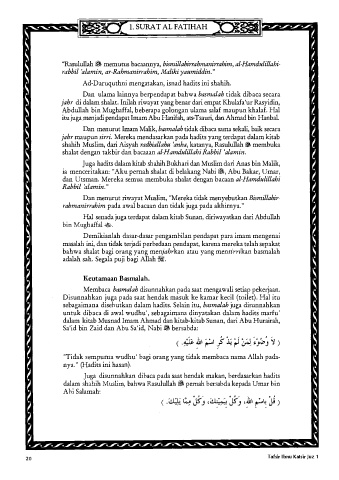 1. SURAT AL FATIHAH
"Rasulullah ﷺ memutus bacaannya, bismillahirrahmanirrahim, al-Hamdulillahi-
rabbil 'alamin, ar-Rahmanirrahim, Maliki yaumiddin."
Ad-Daruquthni mengatakan, isnad hadits ini shahih.
Dan ulama lainnya berpendapat bahwa basmalah tidak dibaca secara
jahr di dalam shalat. Inilah riwayat yang benar dari empat Khulafa'ur Rasyidin,
Abdullah bin Mughaffal, beberapa golongan ulama salaf maupun khalaf. Hal
itu juga menjadi pendapat Imam Abu Hanifah, ats-Tsauri, dan Ahmad bin Hanbal.
Dan menurut Imam Malik, basmalah tidak dibaca sama sekali, baik secara
jahr maupun sirri. Mereka mendasarkan pada hadits yang terdapat dalam kitab
shahih Muslim, dari Aisyah radhiallahu 'anha, katanya, Rasulullah ﷺ membuka
shalat dengan takbir dan bacaan al-Hamdulillahi Rabbil 'alamin.
Juga hadits dalam kitab shahih Bukhari dan Muslim dari Anas bin Malik,
ia menceritakan: "Aku pernah shalat di belakang Nabi ﷺ, Abu Bakar, Umar,
dan Utsman. Mereka semua membuka shalat dengan bacaan al-Hamdulillahi
Rabbil 'alamin."
Dan menurut riwayat Muslim, "Mereka tidak menyebutkan Bismillahir-
rahmanirrahim pada awal bacaan dan tidak juga pada akhirnya."
Hal senada juga terdapat dalam kitab Sunan, diriwayatkan dari Abdullah
bin Mughaffal
Demikianlah dasar-dasar pengambilan pendapat para imam mengenai
masalah ini, dan tidak terjadi perbedaan pendapat, karena mereka telah sepakat
bahwa shalat bagi orang yang menjahrkan atau yang mensirrikan basmalah
adalah sah. Segala puji bagi Allah
Keutamaan Basmalah.
Membaca basmalah disunnahkan pada saat mengawali setiap pekerjaan.
Disunnahkan juga pada saat hendak masuk ke kamar kecil (toilet). Hal itu
sebagaimana disebutkan dalam hadits. Selain itu, basmalah juga disunnahkan
untuk dibaca di awal wudhu', sebagaimana dinyatakan dalam hadits marfu'
dalam kitab Musnad Imam Ahmad dan kitab-kitab Sunan, dari Abu Hurairah,
Sa'id bin Zaid dan Abu Sa'id, Nabi ﷺ bersabda:
( لاَ وُضُوْءَ لِمَنْ لَمْ يَذْكُرِ اسْمَ اللهِ عَلَيْهِ. )
"Tidak sempurna wudhu' bagi orang yang tidak membaca nama Allah pada-
nya." (Hadits ini hasan)
Juga disunnahkan dibaca pada saat hendak makan, berdasarkan hadits
dalam shahih Muslim, bahwa Rasulullah ﷺ pernah bersabda kepada Umar bin
Abi Salamah:
( قُلْ بِاسْمِ اللهِ، وَكُلْ بِيَمِيْنِكَ، وَكُلْ مِمَّا يَلِيْكَ. )
20
Tafsir Ibnu Katsir Juz 1